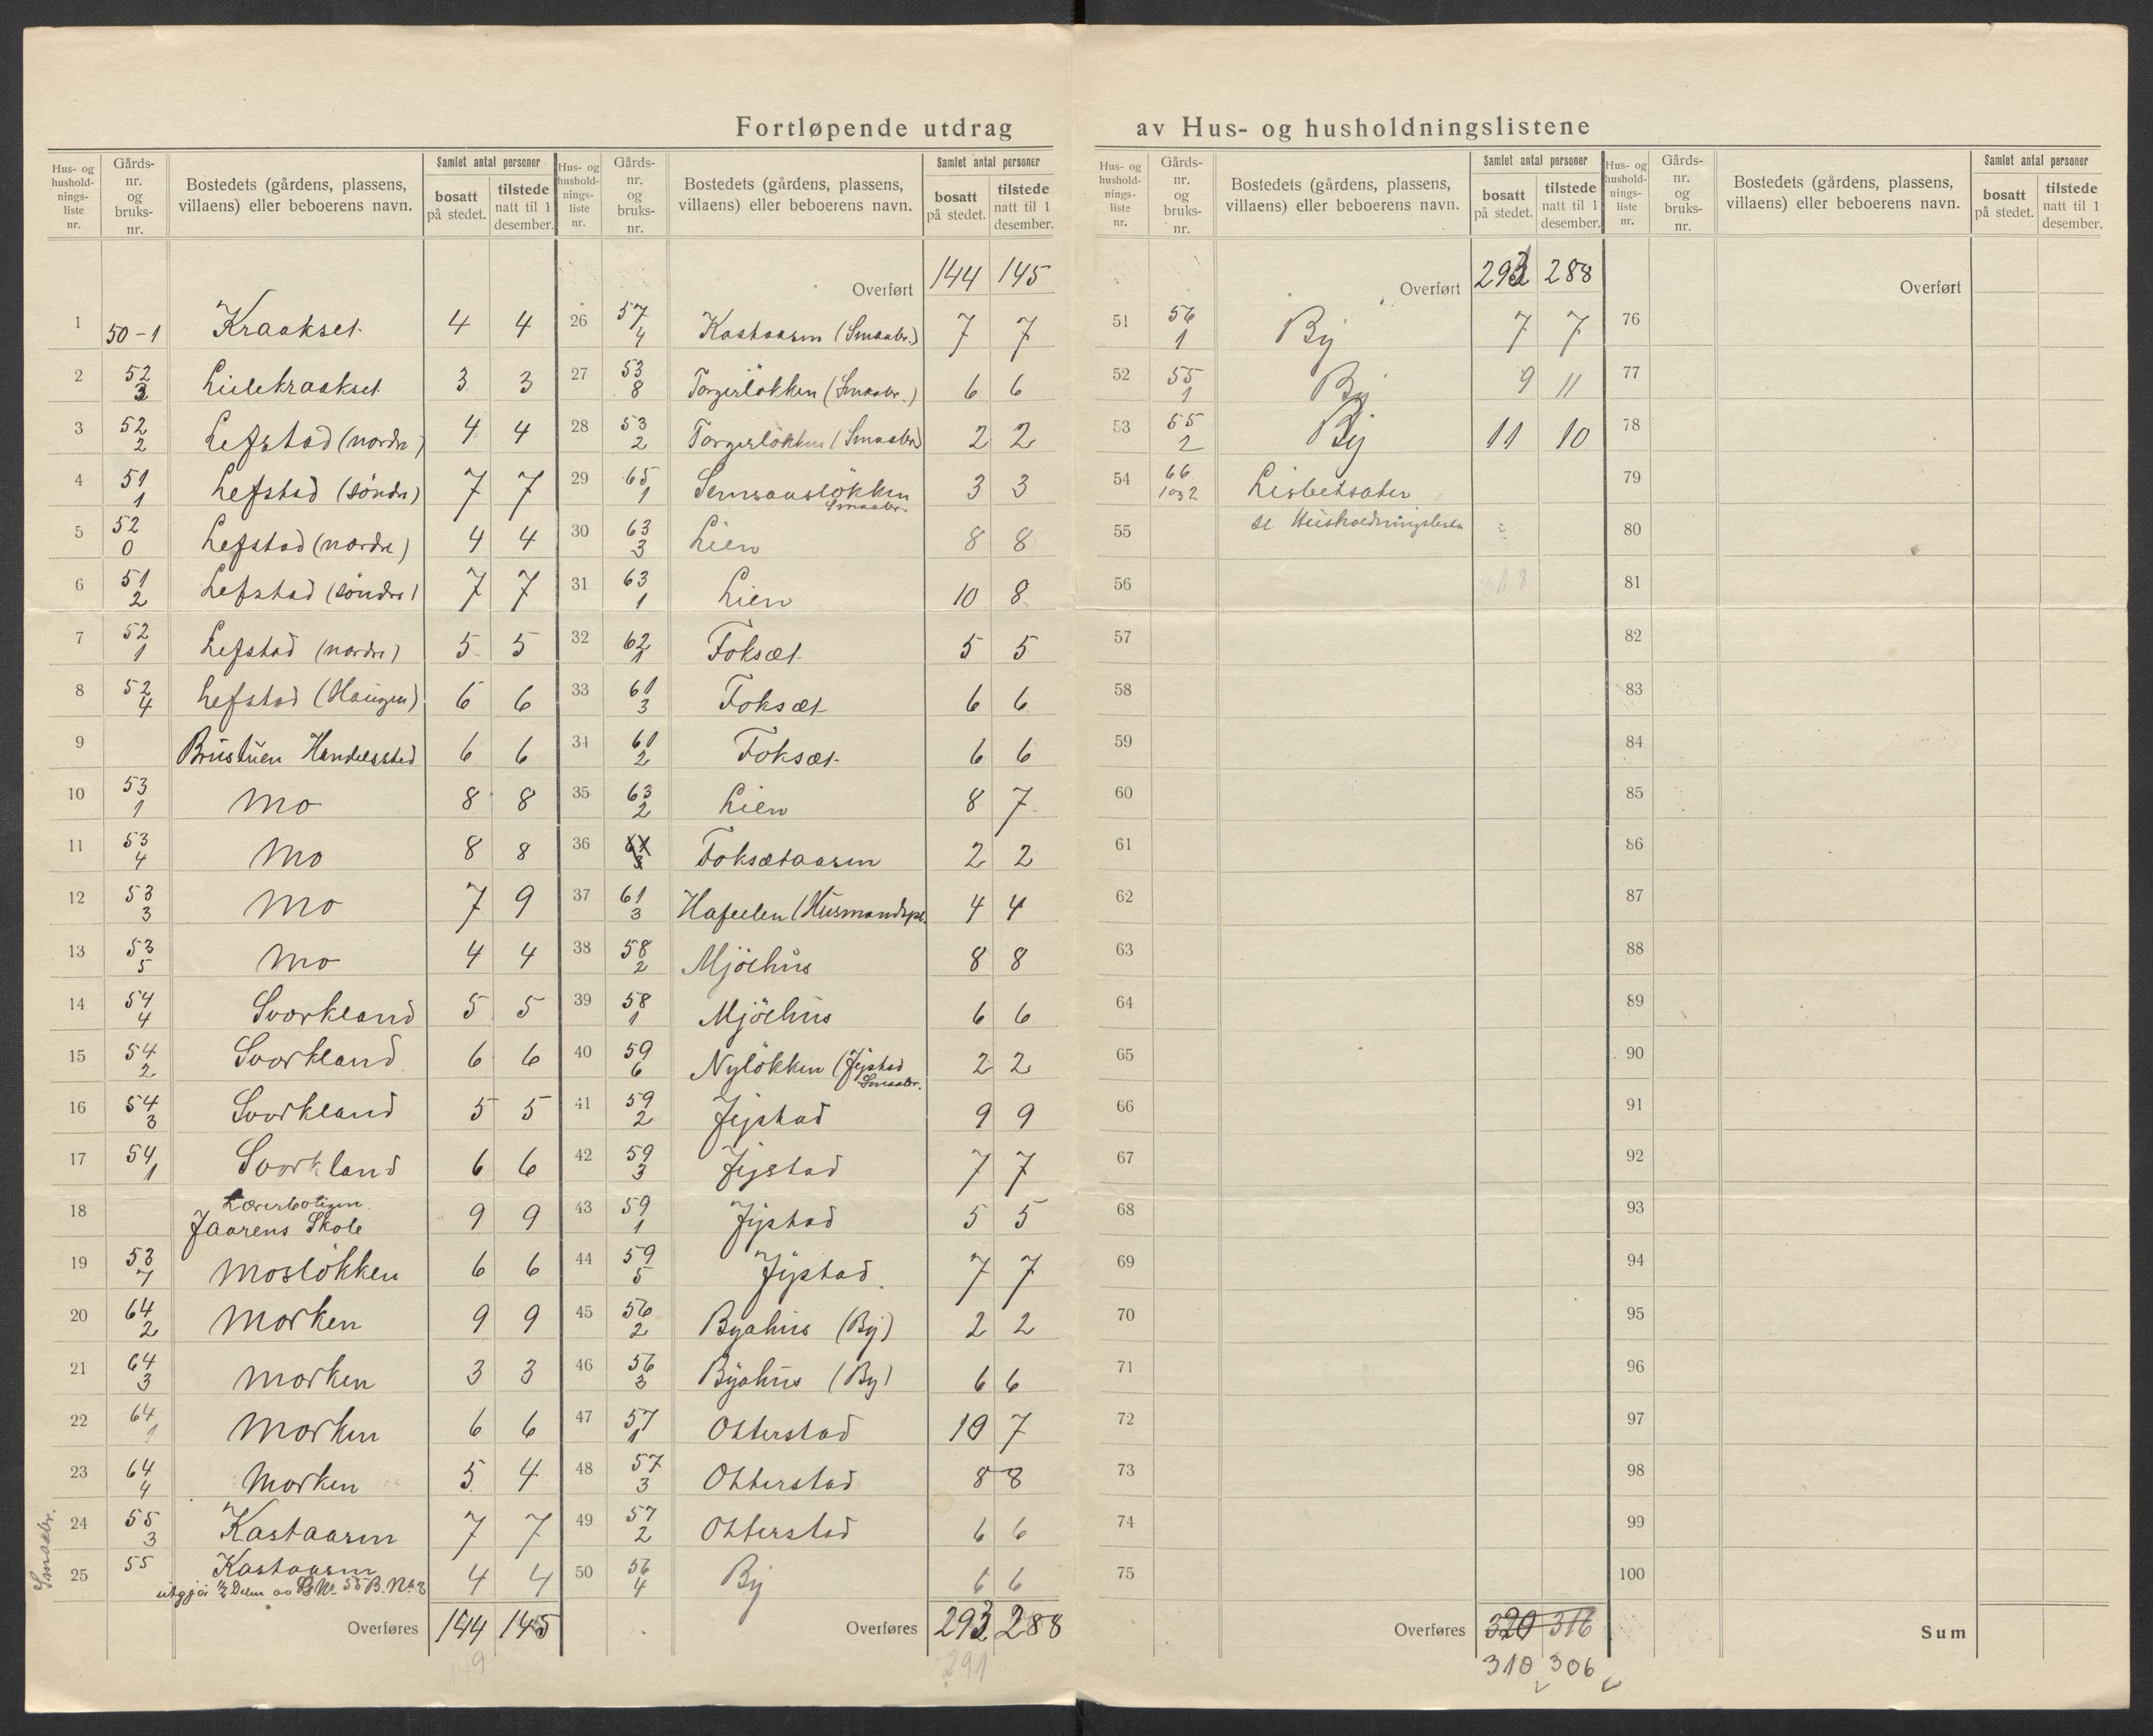 Fortløpende utdrag av Hus- og husholdningslistene
Hus- og hushold-nings-liste nr. | Gårds-nr. og bruks-nr. | Bostedets (gårdens, plassens, villaens) eller beboerens navn. | Samlet antal personer bosatt på stedet. | tilstede natt til 1 desember.
1 50-1 Kraakset 4 4
2 52 3 Lillekraakset 3 3
3 52 2 Lefstad (nordre) 4 4
4 51 1 Lefstad (söndre) 7 7
5 52 0 Lefstad (nordre) 4 4
6 51 2 Lefstad (söndre) 7 7
7 52 1 Lefstad (nordre) 5 5
8 52 4 Lefstad (Haugen) 6 6
9 Brustuen Handelssted 6 6
10 53 1 Mo 8 8
11 53 4 Mo 8 8
12 53 3 Mo 7 9
13 53 5 Mo 4 4
14 54 4 Svorkland 5 5
15 54 2 Svorkland 6 6
16 54 3 Svorkland 5 5
17 54 1 Svorkland 6 6
18 Lærerboligen Jaarens Skole 9 9
19 53 7 Moslökken 6 6
20 64 2 Morken 9 9
21 64 3 Morken 3 3
22 64 1 Morken 6 6
23 64 4 Morken 5 4
Smaabr.
24 55 3 Kastaasen 7 7
25 55 Kastaasen 4 4
utgjör 1/2 Delen av G.Nr. 55 B.Nr. 3
Overføres 144 145
149
Hus- og hushold-nings-liste nr. | Gårds-nr. og bruks-nr. | Bostedets (gårdens, plassens, villaens) eller beboerens navn. | Samlet antal personer bosatt på stedet. | tilstede natt til 1 desember.
Overført 144 145
26 57 4 Kastaasen (Smaabr.) 7 7
27 53 8 Torgerlökken (Smaabr.) 6 6
28 53 2 Torgerlökken (Smaabr.) 2 2
29 65 1 Semsaaslökken Smaabr. 3 3
30 63 3 Lien 8 8
31 63 1 Lien 10 8
32 62 1 Foksæt 5 5
33 61 3 Foksæt 6 6
34 61 2 Foksæt 6 6
35 63 2 Lien 8 7
36 Foksætaasen 2 2
37 61 3 Hafellen (Husmandspl. 4 4
38 58 2 Mjöehus 8 8
39 58 1 Mjöehus 6 6
40 59 6 Nylökken (Jystad Smaabr. 2 2
41 59 2 Jystad 9 9
42 59 3 Jystad 7 7
43 59 1 Jystad 5 5
44 59 5 Jystad 7 7
45 56 2 Byahus (By) 2 2
46 56 3 Byahus (By) 6 6
47 57 1 Otterstad 10 7
48 57 3 Otterstad 8 8
49 57 2 Otterstad 6 6
50 56 4 By 6 6
Overføres 293 288
291
Hus- og hushold-nings-liste nr. | Gårds-nr. og bruks-nr. | Bostedets (gårdens, plassens, villaens) eller beboerens navn. | Samlet antal personer bosatt på stedet. | tilstede natt til 1 desember.
Overført 293 288
51 56 1 By 7 7
52 55 1 By 9 11
53 55 2 By 11 10
54 66 1 og 2 Lisbetsæter
55 se Husholdningsliste
56 318
57
58
59
60
61
62
63
64
65
66
67
68
69
70
71
72
73
74
75
Overføres 320 316
310 306
Hus- og hushold-nings-liste nr. | Gårds-nr. og bruks-nr. | Bostedets (gårdens, plassens, villaens) eller beboerens navn. | Samlet antal personer bosatt på stedet. | tilstede natt til 1 desember.
Overført
76
77
78
79
80
81
82
83
84
85
86
87
88
89
90
91
92
93
94
95
96
97
98
99
100
Sum